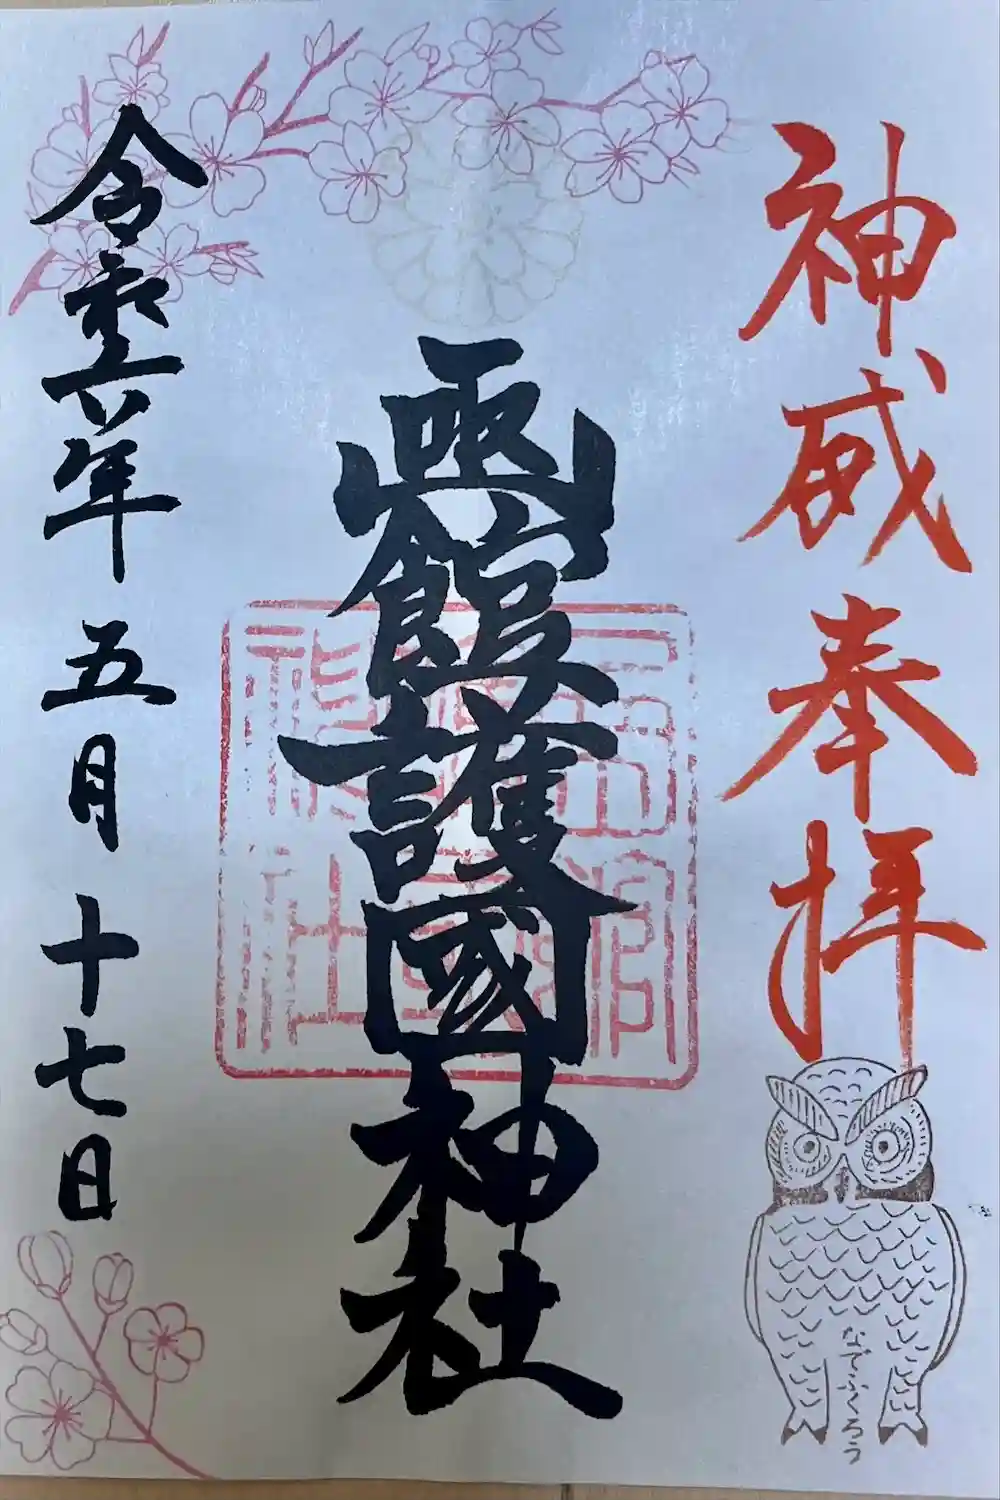 神威奉拝
函館護國神社
令和六年五月十七日
なでふくろう